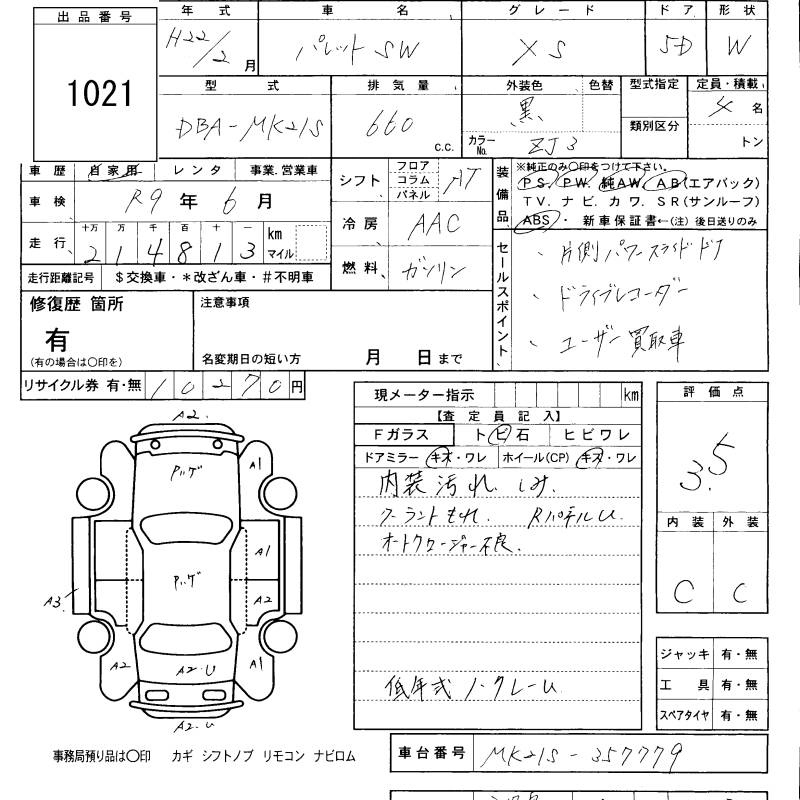 出品番号
1021
年式
H22/2月
車名
パレットSW
グレード
XS
ドア
5D
形状
W
型式
DBA-MK21S
排気量
660 C.C.
外装色
黒
色替
カラーNo.
ZJ3
型式指定
類別区分
定員・積載
4名
トン
車歴 自家用 レンタ 事業.営業車
車検 R9年6月
走行
十万 万 千 百 十 一
2 1 4 8 1 3
km
マイル
走行距離記号 $交換車・*改ざん車・#不明車
シフト
フロア
コラム
パネル
AT
冷房 AAC
燃料 ガソリン
装備品
※純正のみ○印をつけて下さい。
PS. PW. 純AW. AB(エアバック)
TV. ナビ. カワ. SR(サンルーフ)
ABS・ 新車保証書←(注) 後日送りのみ
セールスポイント
、片側パワースライドドア
、ドライブレコーダー
、ユーザー買取車
修復歴 箇所
有
(有の場合は○印を)
注意事項
名変期日の短い方 月 日まで
リサイクル券 有・無 10270円
現メーター指示 km
【査定員記入】
Fガラス トビ石 ヒビワレ
ドアミラー キズ・ワレ ホイール(CP) キズ・ワレ
内装汚れ. しみ.
クーラントもれ. RパネルU.
オートクロージャー不良.
低年式ノークレーム
評価点
3.5
内装 外装
C C
ジャッキ 有・無
工具 有・無
スペアタイヤ 有・無
A2.
P.ハゲ
A1
A1
P.ハゲ
A2
A3.
A2
A2.U
A1
A2.U
事務局預り品は○印 カギ シフトノブ リモコン ナビロム
車台番号 MK21S-357779